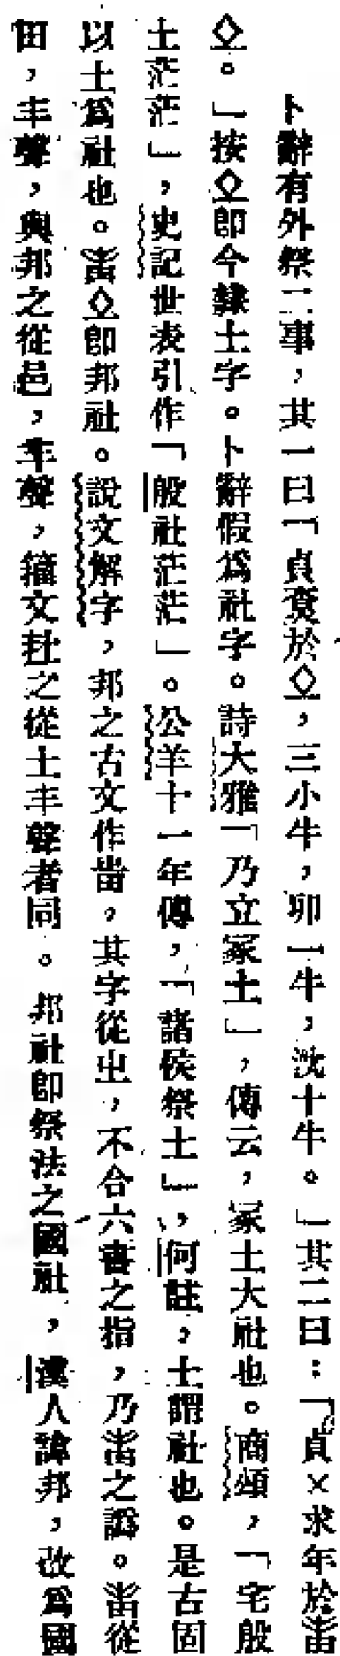 卜辭有外祭二事，其一曰「貞寮於◇，三小牛，卯一牛，沈十牛。」其二曰：「貞×求年於𤰫
◇。」按◇卽今隸土字。卜辭假爲社字。詩大雅「乃立冢土」，傳云，冢土大社也。商頌，「宅殷
土茫茫」，史記世表引作「殷社茫茫」。公羊十一年傳，「諸侯祭土」，何註，土謂社也。是古固
以土爲社也。𤰫◇卽邦社。說文解字，邦之古文作𤰫，其字從㞢，不合六書之指，乃𤰫之譌。𤰫從
田，丰聲，與邦之從邑，丰聲，籀文𡊽之從土丰聲者同。邦社卽祭法之國社，漢人諱邦，改爲國